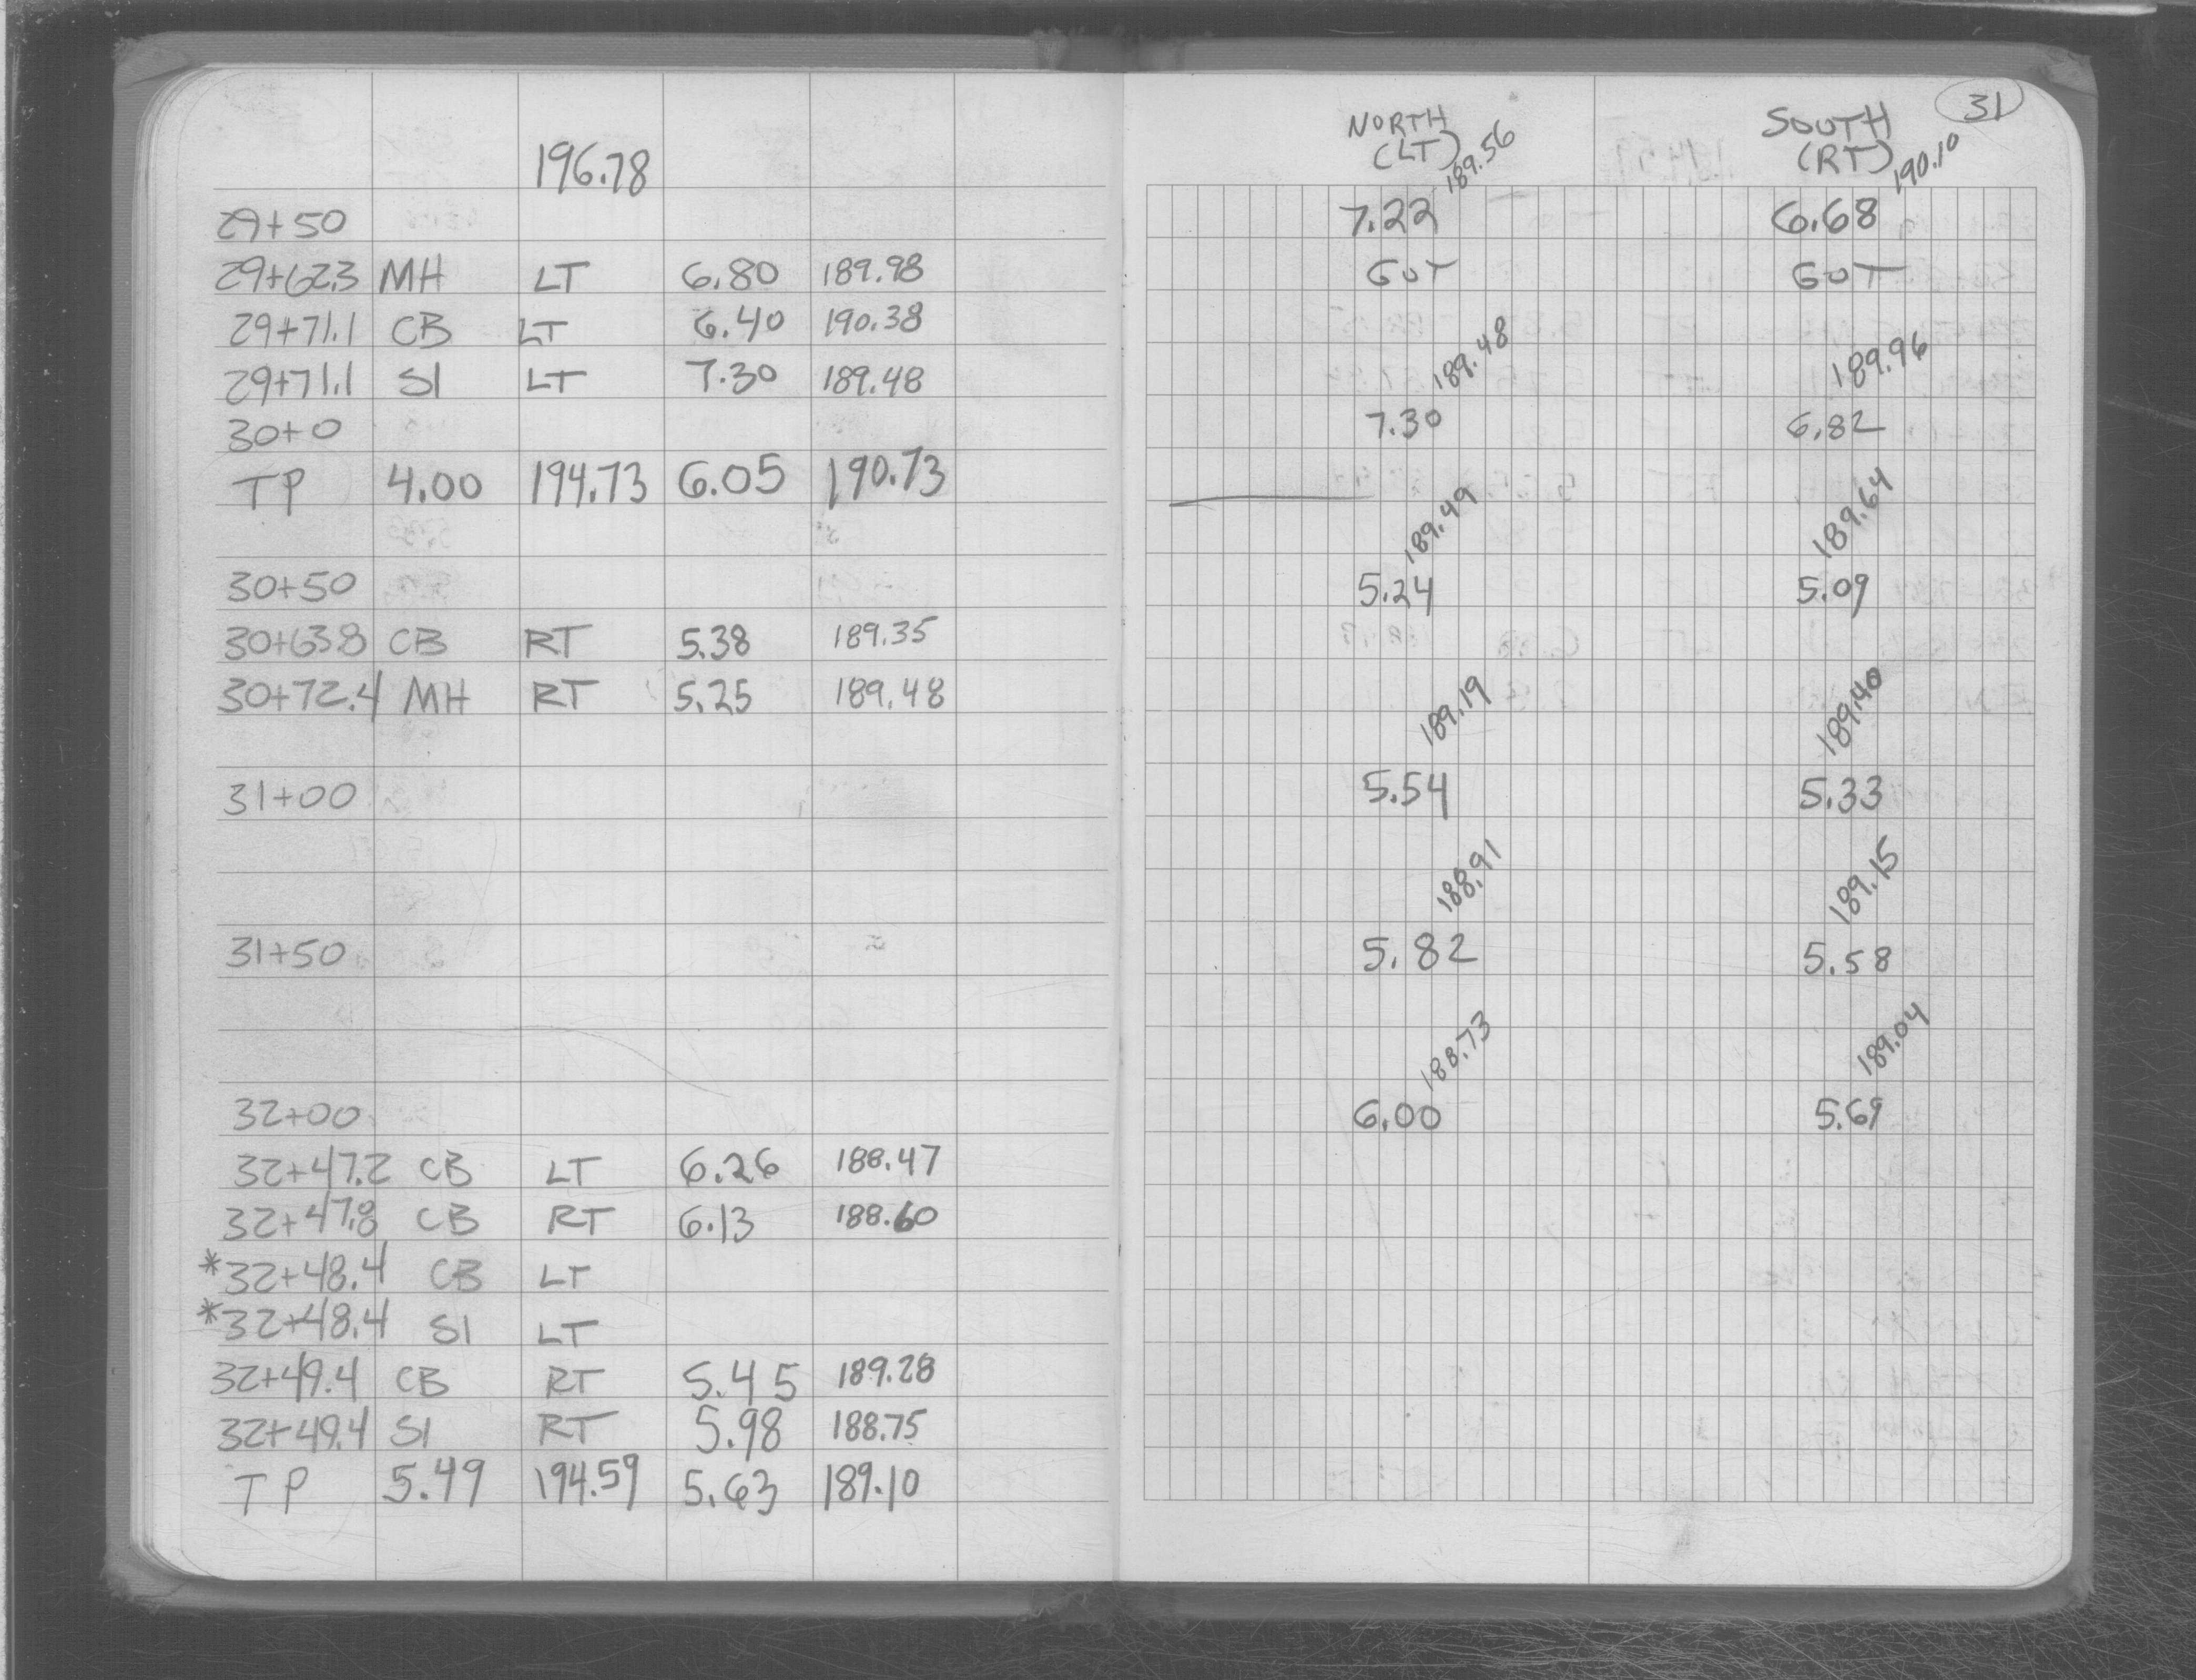 196.78
29+50
29+62.3 MH LT 6.80 189.98
29+71.1 CB LT 6.40 190.38
29+71.1 SI LT 7.30 189.48
30+0
TP 4.00 194.73 6.05 190.73
30+50
30+63.8 CB RT 5.38 189.35
30+72.4 MH RT 5.25 189.48
31+00
31+50
32+00
32+47.2 CB LT 6.26 188.47
32+47.8 CB RT 6.13 188.60
*32+48.4 CB LT
*32+48.4 SI LT
32+49.4 CB RT 5.45 189.28
32+49.4 SI RT 5.98 188.75
TP 5.49 194.59 5.63 189.10
31
NORTH SOUTH
(LT) 189.56 (RT) 190.10
7.22 6.68
GUT GUT
189.48 189.96
7.30 6.82
189.49 189.64
5.24 5.09
189.19 189.40
5.54 5.33
188.91 189.15
5.82 5.58
188.73 189.04
6.00 5.69